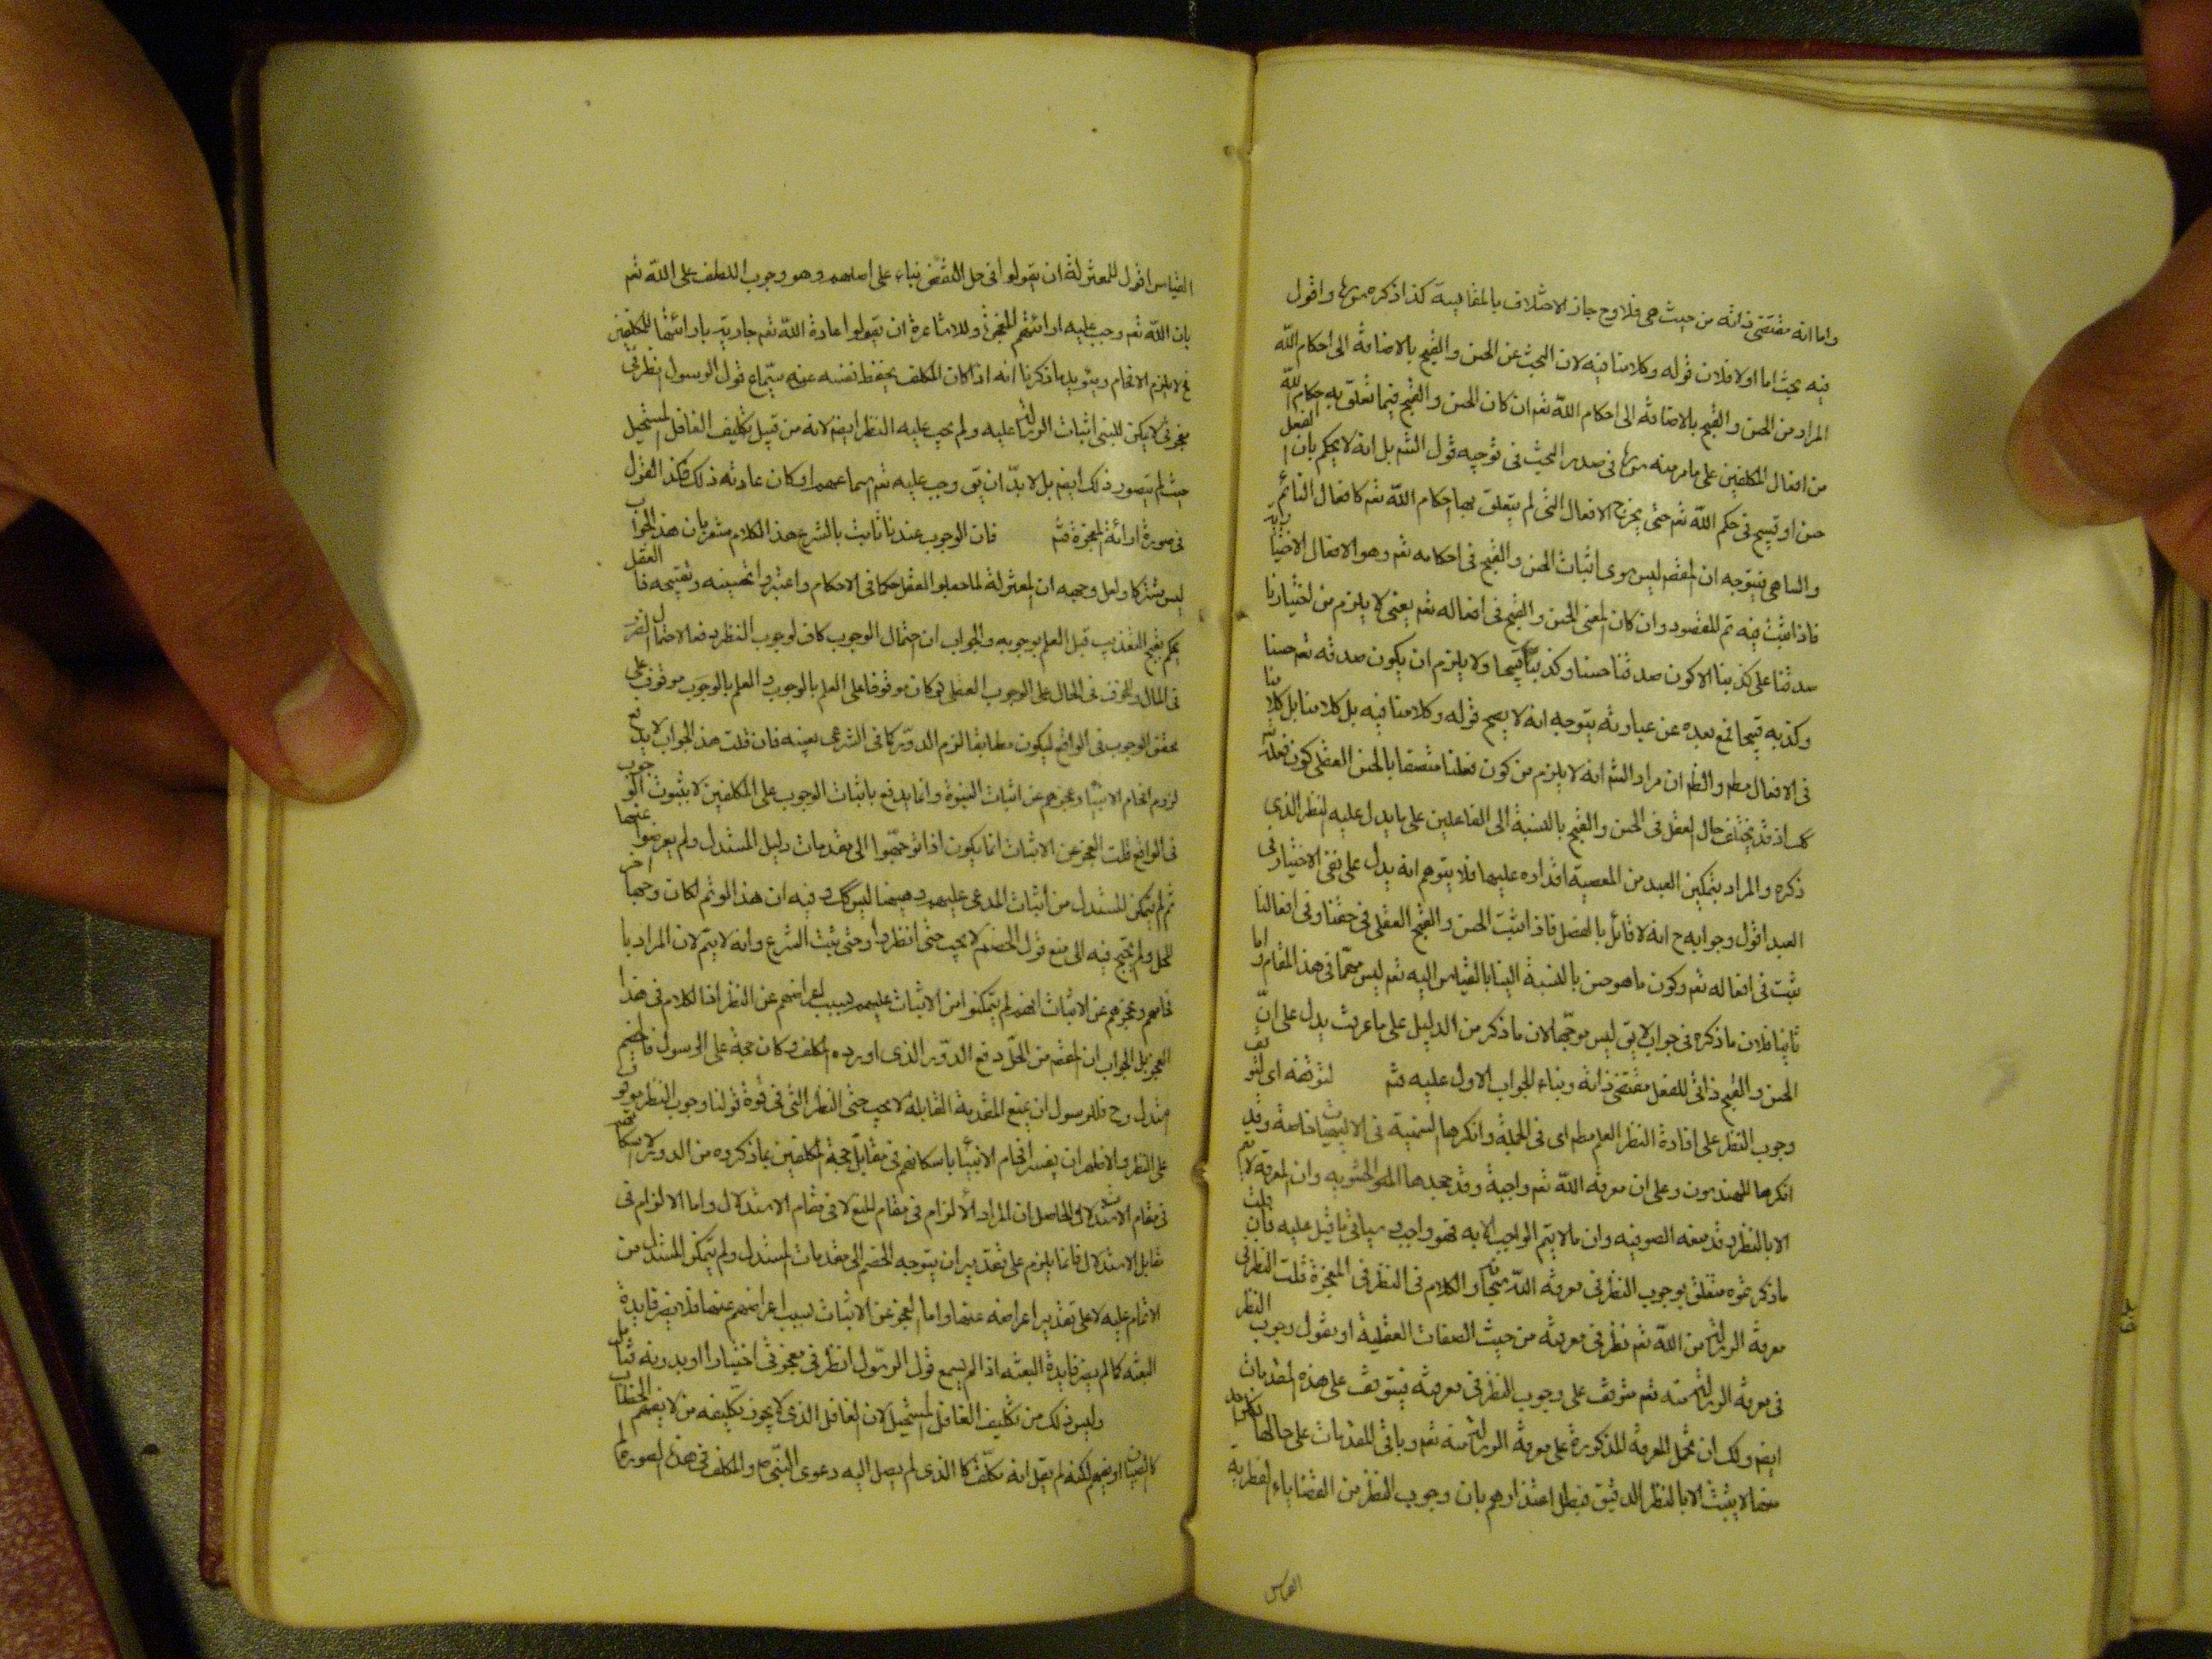 واما انه مقتضى ذاته من حيث هى فلا وح جاز الاختلاف بالمقايسة كذا ذكره واقول
فيه بحث اما اولا فلان قوله وكلامنا فيه لان البحث عن الحسن والقبح بالاضافة الى احكام الله
المراد من الحسن والقبح بالاضافة الى احكام الله تعم ان كان الحسن والقبح فيما تعلق به احكام الله
من افعال المكلفين على ما مر منه فى صدر البحث فى توجيه قول الشم بل انه لا يحكم بان الفعل
حسن او قبيح فى حكم الله تعم حتى يخرج الافعال التى لم يتعلق بها احكام الله تعم كافعال النائم
والساهى فيتوجه ان المقصم ليس سوى اثبات الحسن والقبح فى احكامه تعم وهو الافعال الاختيارية
فاذا ثبت فيه تم المقصود وان كان المعنى الحسن والقبح فى افعاله تعم يعنى لا يلزم من اختيارنا
صدقنا على كذبنا الا كون صدقنا حسنا وكذبنا قبيحا ولا يلزم ان يكون صدقه تعم حسنا
وكذبه قبيحا فمع بعده عن عبارته يتوجه انه لا يصح قوله وكلامنا فيه بل كلامنا بل كلامنا
فى الافعال مطم والظم ان مراد الشم انه لا يلزم من كون فعلنا متصفا بالحسن العقلى كون فعله تعم
كك اذ قد يختلف حال الفعل فى الحسن والقبح بالنسبة الى الفاعلين على ما يدل عليه النظر الذى
ذكره والمراد بتمكين العبد من المعصية اقداره عليها فلا يتوهم انه يدل على نفى الاختيار فى
العبد اقول وجوابه ح انه لا قائل بالفصل فاذا ثبت الحسن والقبح العقلى فى حقنا وفى افعالنا
ثبت فى افعاله تعم وكون ما هو حسن بالنسبة الينا بالقياس اليه تعم ليس مهما فى هذا المقام واما
ثانيا فلان ما ذكره فى جواب لا يق ليس موجها لان ما ذكر من الدليل على ما عرفت يدل على ان
الحسن والقبح ذاتى للفعل مقتضى ذاته وبناء الجواب الاول عليه فتم لتوقفه اى لتوقف
وجوب النظر على افادة النظر العلم مطم اى فى الجملة وانكرها السمنية فى الالهيات خاصة وقد
انكرها المهندسون وعلى ان معرفة الله تعم واجبة وقد جحدها الحشوية وان المعرفة لا يتم
الا بالنظر وقد منعه الصوفية وان ما لا يتم الواجب الا به فهو واجب وسياتى ما قيل عليه فان قلت
ما ذكرتموه متعلق بوجوب النظر فى معرفة الله سبحانه والكلام فى النظر فى المعجزة قلت النظر فى
معرفة الرسالة من الله تعم نظر فى معرفته من حيث الصفات الفعلية او نقول وجوب النظر
فى معرفة الرسالة منه تعم متوقف على وجوب النظر فى معرفته فيتوقف على هذه المقدمات
ايضم ولك ان تحمل المعرفة المذكورة على معرفة الرسالة منه تعم وباقى المقدمات على حالها
منها لا يثبت الا بالنظر الدقيق فبطل اعتذارهم بان وجوب النظر من القضايا الفطرية
القياس
القياس اقول للمعتزلة ان يقولوا فى حل النقض بناء على اصلهم وهو وجوب اللطف على الله تعم
بان الله تعم وجب عليه ارائتهم المعجزة وللاشاعرة ان يقولوا عادة الله تعم جارية بارائتها للمكلفين
فح لا يلزم الافحام ويؤيد ما ذكرنا انه اذا كان المكلف يحفظ نفسه عن سماع قول الرسول انظر فى
معجزتى لا يمكن للنبى اثبات الرسالة عليه ولم يجب عليه النظر ايضم لانه من قبيل تكليف الغافل المستحيل
حيث لم يتصور ذلك ايضم بل لا بد ان يق وجب عليه تعم اسماعهم او كان عادته ذلك فكذا القول
فى صورة ارائة المعجزة فتم فان الوجوب عندنا ثابت بالشرع هذا الكلام مشعر بان هذا الجواب
ليس مشتركا ولعل وجهه ان المعتزلة لما جعلوا العقل حكما فى الاحكام واعتبروا تحسينه وتقبيحه فالعقل
يحكم بقبح التعذيب قبل العلم بوجوبه والجواب ان احتمال الوجوب كاف لوجوب النظر دفعا لاحتمال الضرر
فى المآل والخوف فى الحال على الوجوب العقلى لو كان موقوفا على العلم بالوجوب والعلم بالوجوب موقوف على
تحقق الوجوب فى الواقع ليكون مطابقا لزم الدور كما فى الشرعى بعينه فان قلت هذا الجواب لا يدفع
لزوم افحام الانبياء وعجزهم عن اثبات النبوة وانما يدفع باثبات الوجوب على المكلفين لا بثبوت الوجوب
فى الواقع قلت العجز عن الاثبات انما يكون اذا توجهوا الى مقدمات دليل المستدل ولم يعرضوا عنها
ثم لم يتمكن المستدل من اثبات المدعى عليهم وههنا ليس كك وفيه ان هذا لو تم لكان وجها اخر
للحل ولم يحتج فيه الى منع قول الخصم لا يجب حتى انظر او حتى يثبت الشرع وانه لا يتم لان المراد با
فحامهم وعجزهم عن الاثبات انهم لم يتمكنوا من الاثبات عليهم بسبب اعراضهم عن النظر اذ الكلام فى هذا
العجز بل الجواب ان المقصم من الحل دفع الدور الذى اورده المكلف وكان حجة على الرسول
مستدل وح فللرسول ان يمنع المقدمة القائلة لا يجب حتى النظر التى فى قوة قولنا وجوب النظر موقوف
على النظر والاظهر ان يفسر افحام الانبياء باسكاتهم فى مقابل حجة المكلفين بما ذكروه من الدور لا اسكاتهم
فى مقام الاستدلال والحاصل ان المراد الالزام فى مقام المنع لا فى مقام الاستدلال واما الالزام فى
مقابل الاستدلال فانما يلزم على تقدير ان يتوجه الخصم الى مقدمات المستدل ولم يتمكن المستدل من
الاتمام عليه لا على تقدير اعراضه عنها واما العجز عن الاثبات بسبب اعراضهم عنها فلا يضر فايدة
البعثة كما لم يضر فايدة البعثة اذا لم يسمع قول الرسول انظر فى معجزتى اختيارا او بدونه فتامل
وليس ذلك من تكليف الغافل المستحيل لان الغافل الذى لا يجوز تكليفه من لا يفهم الخطاب
كالصبيان او يفهم لكنه لم يقل انه مكلف كالذى لم يصل اليه دعوى النبى ص والمكلف فى هذه الصورة